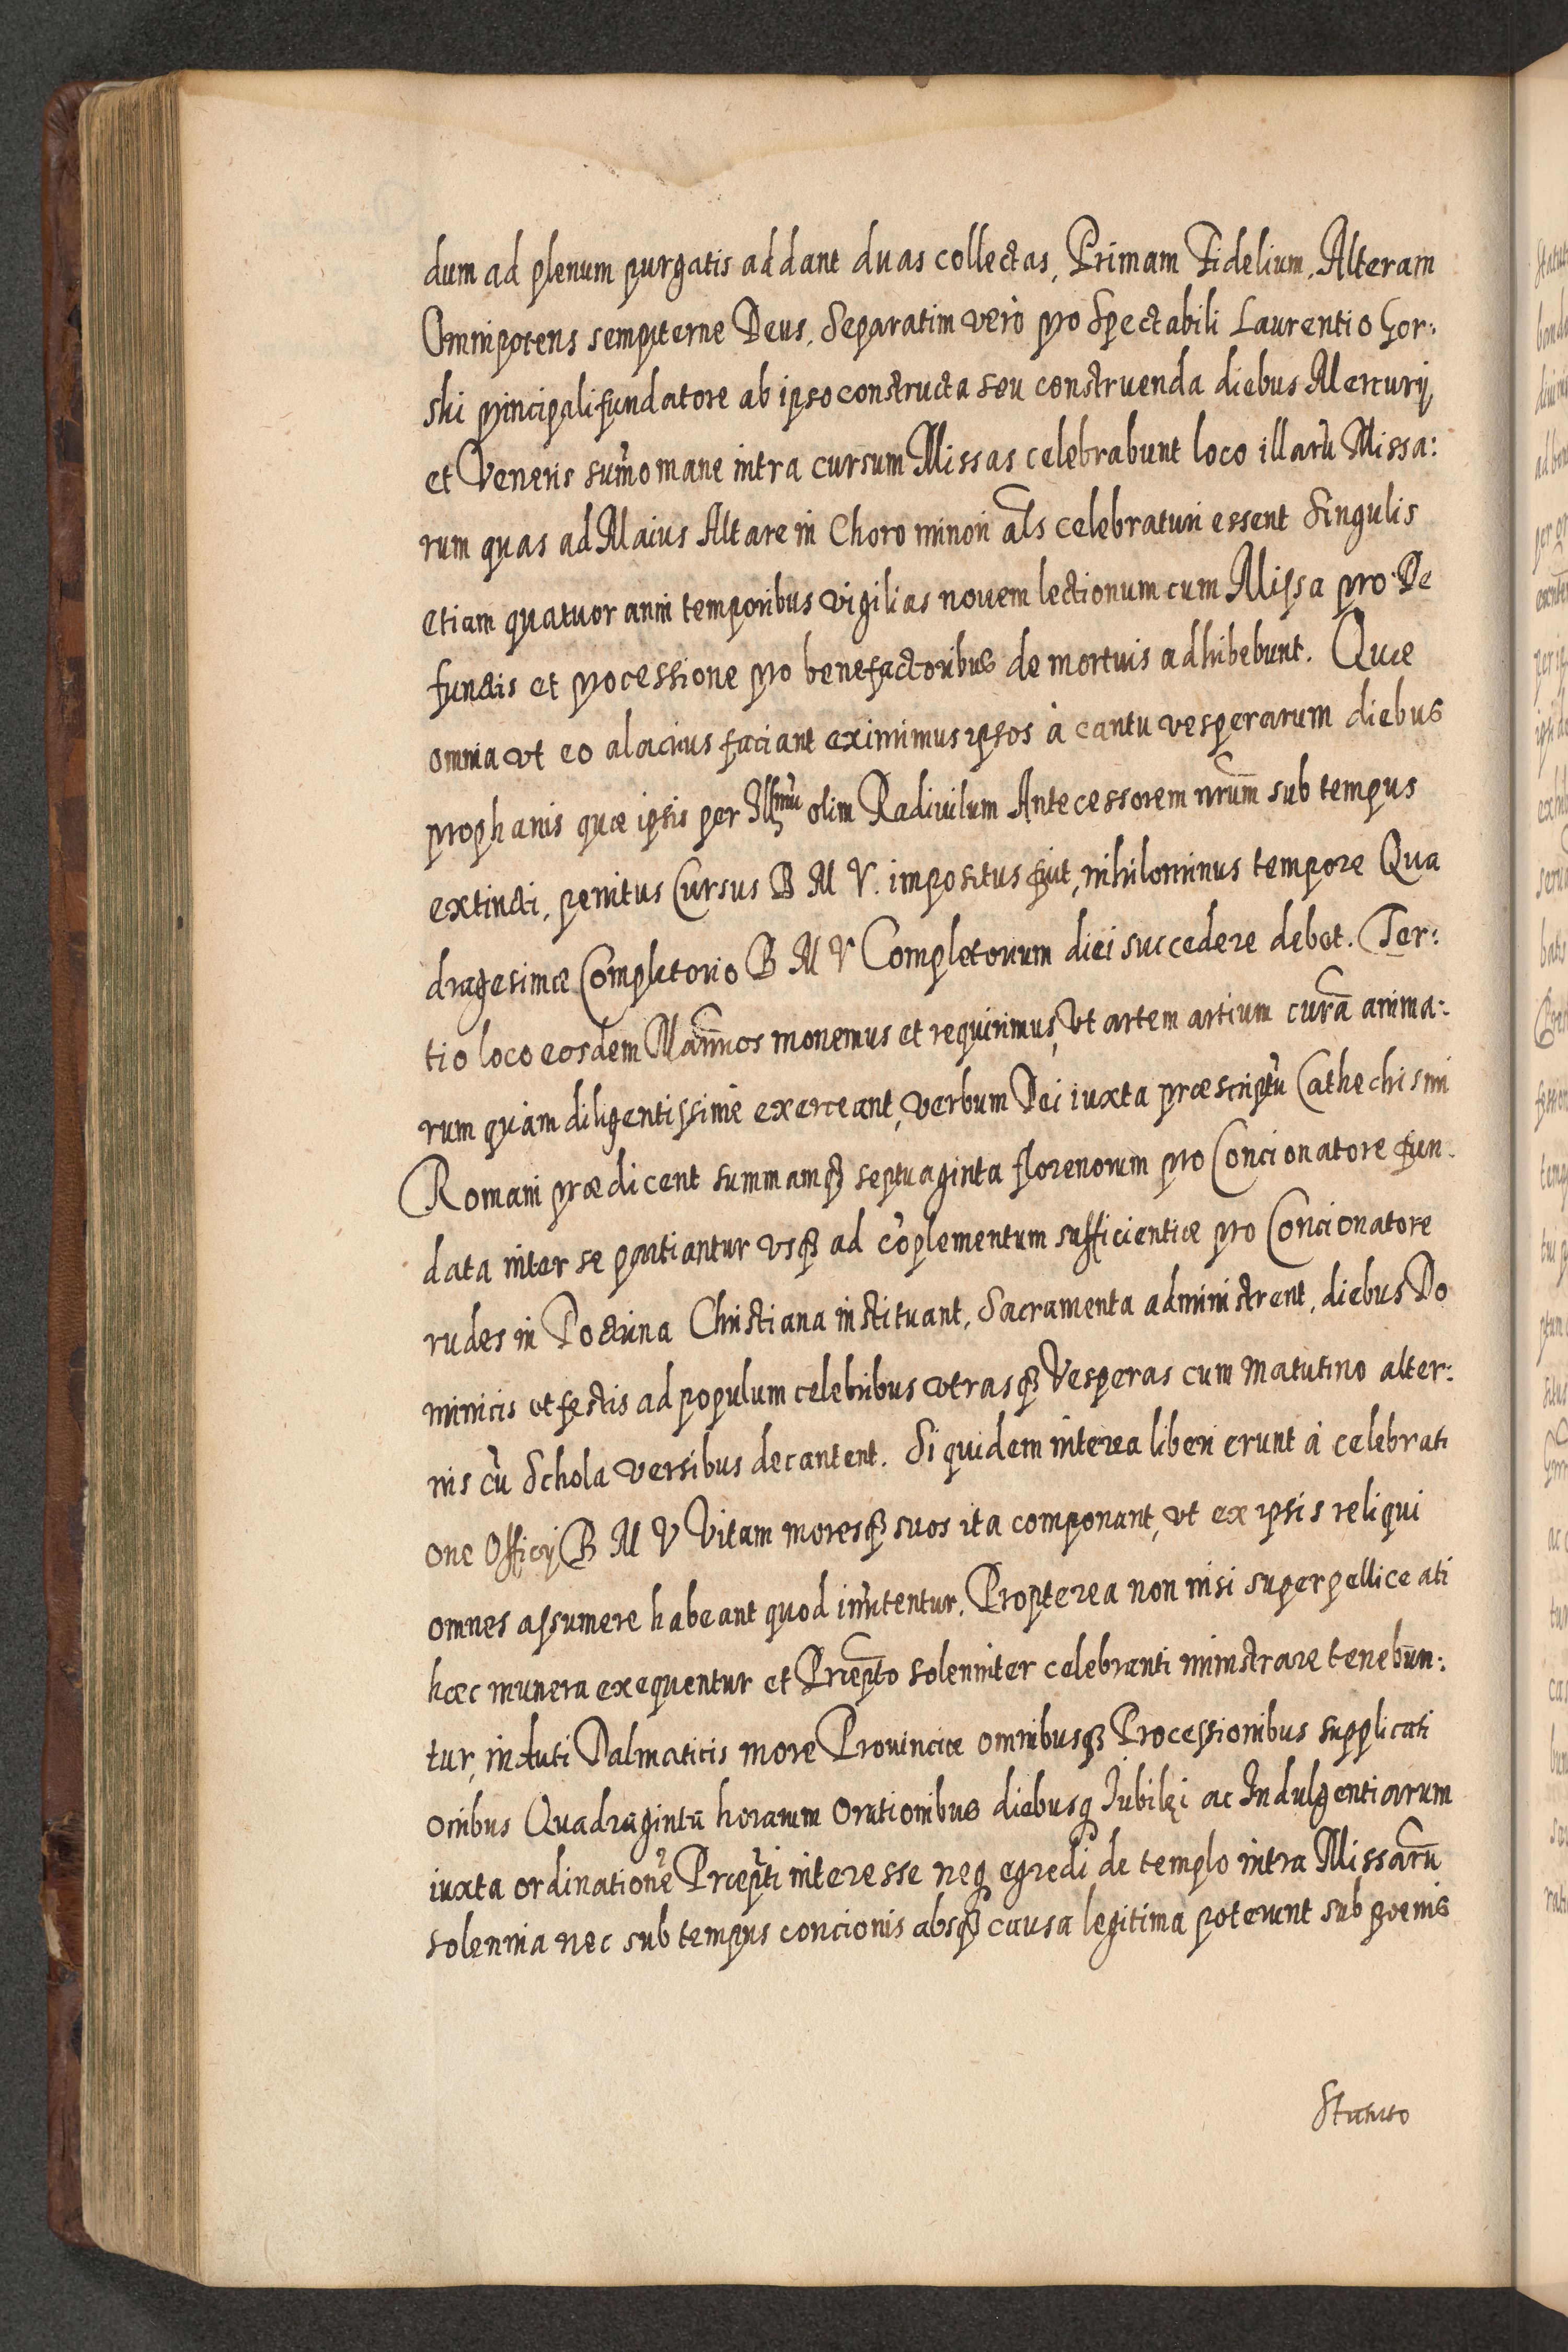 dum ad plenum purgatis addant duas collectas, Primam Fidelium, Alteram
Omnipotens sempiterne Deus. Separatim verò pro Spectabili Laurentio Gor:
ski principali fundatore ab ipso constructa seu construenda diebus Mercurij
et Veneris sum̃o mane intra cursum Missas celebrabunt loco illarũ Missa:
rum quas ad Maius Altare in Choro minori al̃s celebraturi essent Singulis
etiam quatuor anni temporibus vigilias nouem lectionum cum Missa pro De
functis et processione pro benefactoribus de mortuis adhibebunt. Quæ
omnia vt eo alacrius faciant eximimus ipsos à cantu vesperarum diebus
prophanis quæ ipsis per Illmũ olim Radiuilum Antecessorem nr̃um sub tempus
extincti, penitus Cursus B M V. impositus fuit, nihilominus tempore Qua
dragesimæ Completorio B M V Completorium diei succedere debet. Ter:
tio loco eosdem Man̄nos monemus et requirimus, Vt artem artium curā anima:
rum quàm diligentissimè exerceant, verbum Dei iuxta præscriptũ Cathechismi
Romani prædicent summamq3 septuaginta florenorum pro Concionatore fun
data inter se partiantur vsq3 ad cõplementum sufficientiæ pro Concionatore
rudes in Doctrina Christiana instituant, Sacramenta administrent, diebus Do
minicis et festis ad populum celebribus vtrasq3 Vesperas cum Matutino alter:
nis cũ Schola versibus decantent. Siquidem interea liberi erunt à celebrati
one Officij B M V Vitam moresq3 suos ita componant, vt ex ipsis reliqui
omnes assumere habeant quod im̃itentur. Propterea non nisi superpelliceati
hæc munera exequentur et Præpto solenniter celebranti ministrare tenebūn:
tur, induti Dalmaticis more Prouinciæ omnibusq3 Processionibus supplicati
onibus Quadragintā horarum Orationibus diebusq Iubilęi ac Indulgentiarum
iuxta ordinationẽ Præpti interesse neq egredi de templo intra Missarū
solennia nec sub tempus concionis absq3 causa legitima poterunt sub pœnis
Statuto